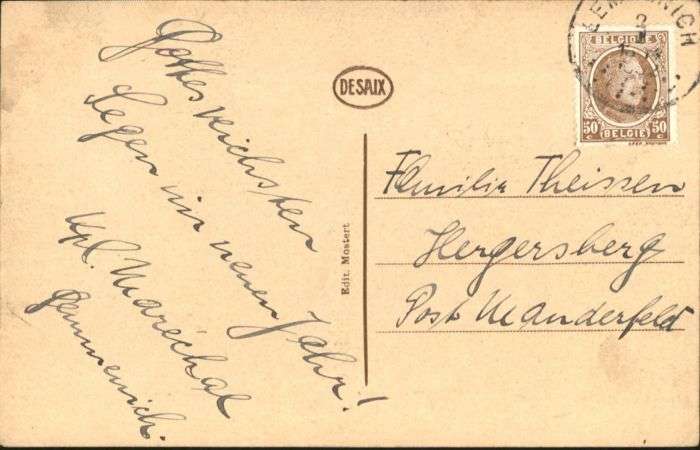 Gottes reichsten
Segen im neuen Jahr!
Kpl. Maréchal
Gemmenich.
DESAIX
Edit. Mostert
BELGIQUE
50c BELGIE 50c
Familie Theissen
Hergersberg
Post Manderfeld